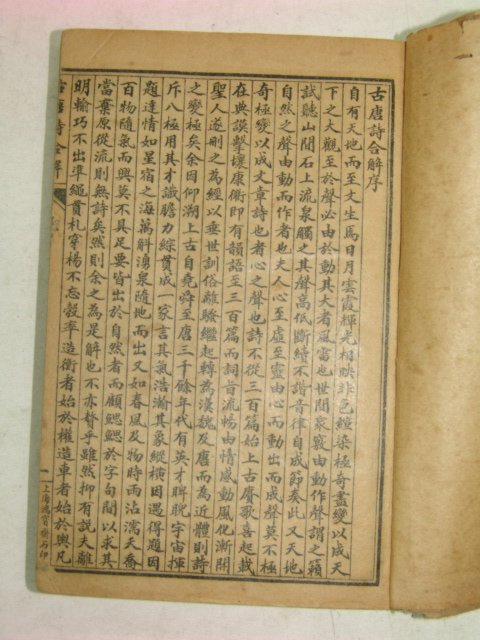 古唐詩合解序
自有天地而至文生焉日月雲霞輝光相映非色繪染極奇盡變以成天
下之大觀至於聲必由於動其大者風雷也世間衆竅由動作聲謂之籟
試聽山間石上流泉觸之其聲高低斷續不諧音律自成節奏此又天地
自然之聲由動而作者也夫人心至虛至靈由心而動出而成聲莫不極
奇極變以成文章詩也者心之聲也詩不從三百篇始上古聲歌喜起載
在典謨擊壤康衢即有韻語至三百篇而詞旨流暢由情感動風化漸開
聖人遂刪之為經以垂世訓俗離騷繼起轉為漢魏及唐而為近體則詩
之變極矣余因仰溯上古自堯舜至唐三千餘年代有英才睥睨宇宙揮
斥八極用其才識膽力綜貫成一家言其氣浩瀚其象縱橫因遇得題因
題達情如星宿之海萬斛湧泉隨地而出又如春風及物時雨沾濡夭喬
百物隨氣而興莫不具足要皆出於自然者而顧鰓鰓於字句間以求其
當棄原從流則無詩矣然則余之為是解也不亦贅乎雖然抑有說夫離
明輸巧不出準繩貫札穿楊不忘彀率造衡者始於權造車者始於輿凡
古唐詩合解
序
一
上海鴻寶齋石印